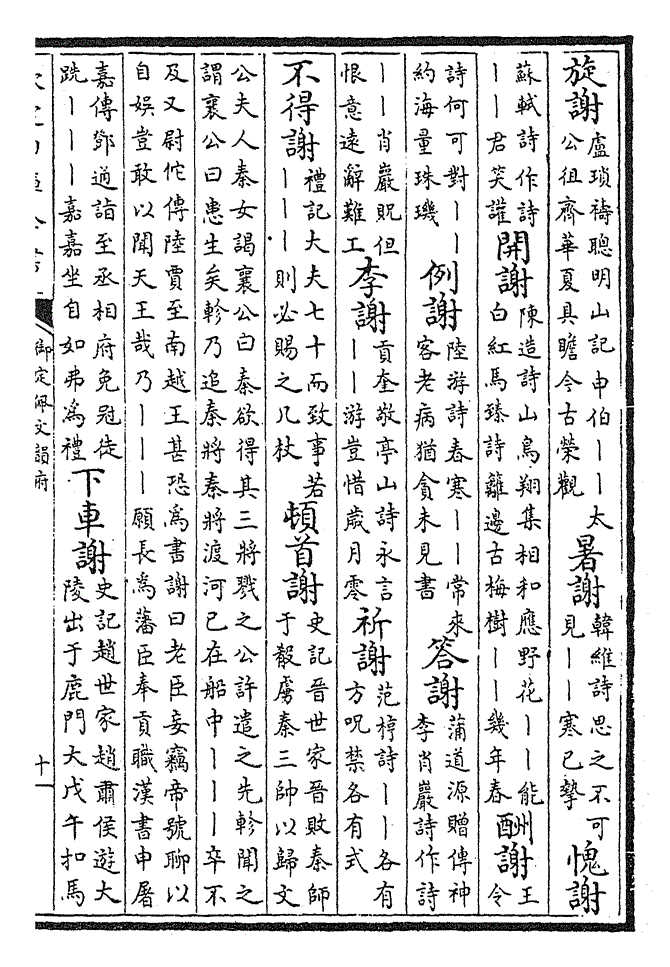 旋謝盧瑣禱聰明山記申伯——太公徂齊華夏具瞻今古榮觀暑謝韓維詩思之不可見——寒已摯愧謝
蘇軾詩作詩——君笑讙開謝陳造詩山鳥翔集相和應野花——能白紅馬臻詩籬邊古梅樹——幾年春酬謝王令
詩何可對——約海量珠璣例謝陸游詩春寒——常來客老病猶貪未見書答謝蒲道源贈傳神李肖巖詩作詩
——肖巖貺但恨意遠辭難工李謝貢奎敬亭山詩永言——游豈惜歲月零祈謝范梈詩——各有方呪禁各有式
不得謝禮記大夫七十而致事若———則必賜之几杖頓首謝史記晉世家晉敗秦師于殽虜秦三帥以歸文
公夫人秦女謁襄公曰秦欲得其三將戮之公許遣之先軫聞之謂襄公曰患生矣軫乃追秦將秦將渡河已在船中———卒不
及又尉佗傳陸賈至南越王甚恐爲書謝曰老臣妄竊帝號聊以自娛豈敢以聞天王哉乃———願長爲藩臣奉貢職漢書申屠
嘉傳鄧通詣至丞相府免冠徒跣———嘉嘉坐自如弗爲禮下車謝史記趙世家趙肅侯遊大陵出于鹿門大戊午扣馬
御定佩文韻府
十